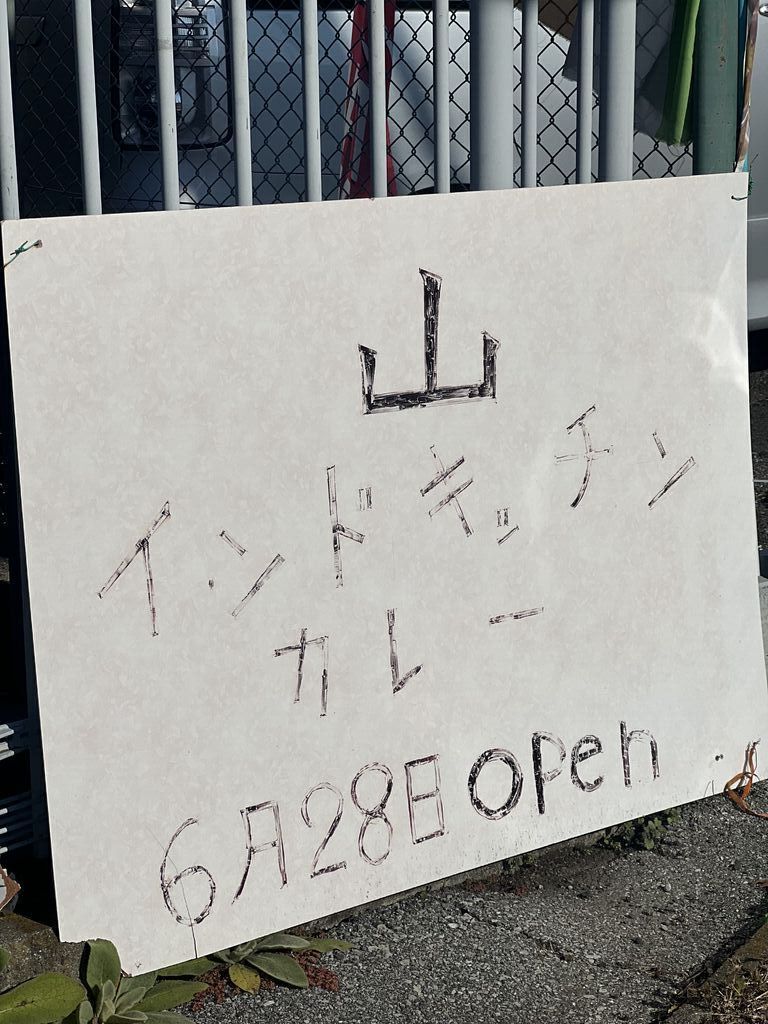 山
インドキッチン
カレー
6月28日open